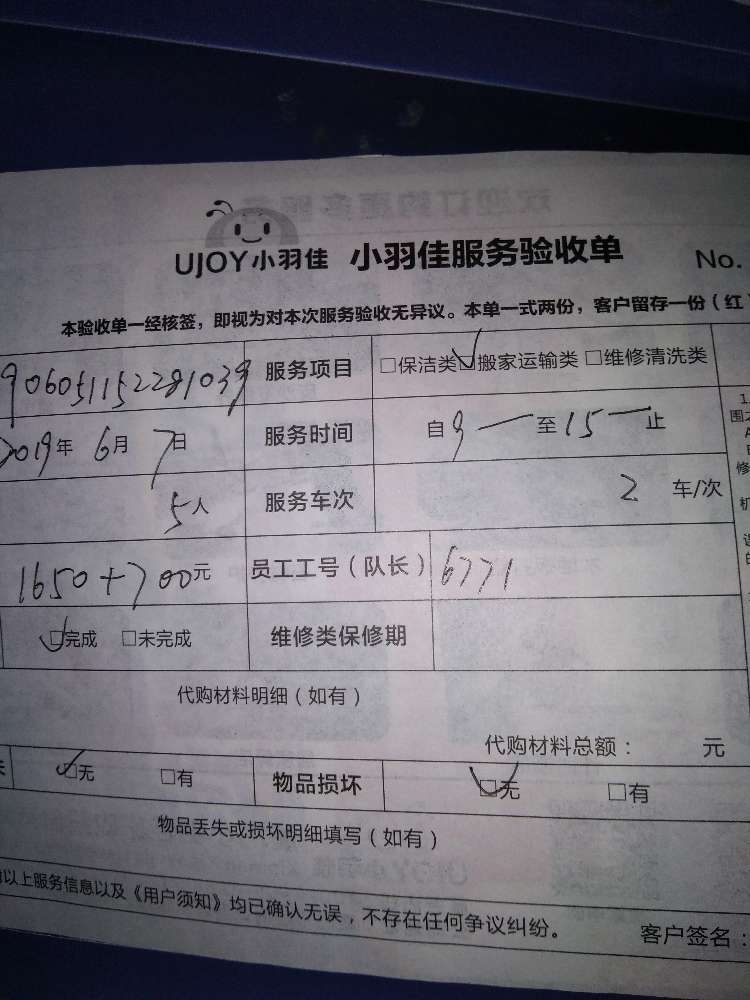 UJOY小羽佳 小羽佳服务验收单 No.
本验收单一经核签，即视为对本次服务验收无异议。本单一式两份，客户留存一份（红
906051152281039 服务项目 □保洁类 ☑搬家运输类 □维修清洗类
2019年 6月 7日 服务时间 自 9 一 至 15 一 止
5人 服务车次 2 车/次
1650+700元 员工工号（队长） 6771
☑完成 □未完成 维修类保修期
代购材料明细（如有）
代购材料总额： 元
☑无 □有 物品损坏 ☑无 □有
物品丢失或损坏明细填写（如有）
以上服务信息以及《用户须知》均已确认无误，不存在任何争议纠纷。
客户签名：